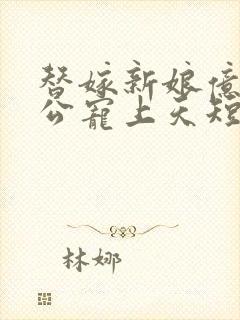 替嫁新娘億
公寵上天短
林娜